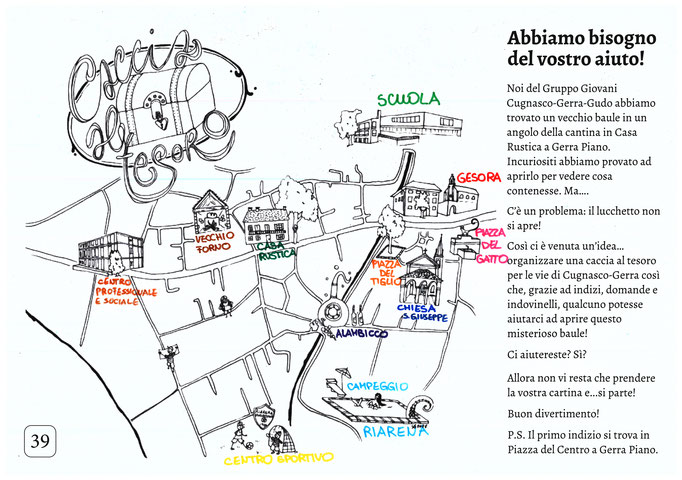 Caccia
al
tesoro
SCUOLA
GESORA
VECCHIO
FORNO
CASA
RUSTICA
PIAZZA
DEL
GATTO
PIAZZA
DEL
TIGLIO
CENTRO
PROFESSIONALE
E SOCIALE
CHIESA
S. GIUSEPPE
ALAMBICCO
CAMPEGGIO
RIARENA
CENTRO SPORTIVO
39
Abbiamo bisogno
del vostro aiuto!
Noi del Gruppo Giovani
Cugnasco-Gerra-Gudo abbiamo
trovato un vecchio baule in un
angolo della cantina in Casa
Rustica a Gerra Piano.
Incuriositi abbiamo provato ad
aprirlo per vedere cosa
contenesse. Ma....
C'è un problema: il lucchetto non
si apre!
Così ci è venuta un'idea...
organizzare una caccia al tesoro
per le vie di Cugnasco-Gerra così
che, grazie ad indizi, domande e
indovinelli, qualcuno potesse
aiutarci ad aprire questo
misterioso baule!
Ci aiutereste? Sì?
Allora non vi resta che prendere
la vostra cartina e...si parte!
Buon divertimento!
P.S. Il primo indizio si trova in
Piazza del Centro a Gerra Piano.